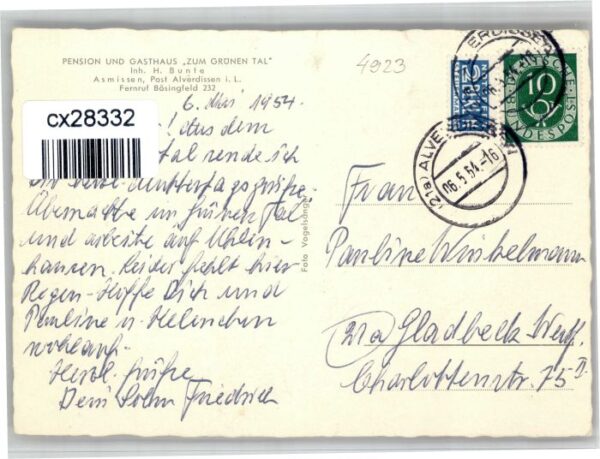 PENSION UND GASTHAUS „ZUM GRÜNEN TAL"
Inh. H. Bunte
Asmissen, Post Alverdissen i. L.
Fernruf Bösingfeld 232
4923
cx28332
6. Mai 1954.
! Aus dem
tal sende ich
Dir herzl. Muttertagsgrüße.
Übernachte im grünen Tal
und arbeite auf Uhlen-
hausen. Leider fehlt hier
Regen - Hoffe Dich und
Pauline u. Helenchen
wohlauf -
Herzl. Grüße
Dein Sohn Friedrich
Foto Vogelsänger
2
NOTOPFER
BERLIN
10
DEUTSCHE BUNDESPOST
(21a) ALVERDISSEN
06.5.54.-16
Frau
Pauline Winkelmann
21a Gladbeck Westf.
Charlottenstr. 75 II